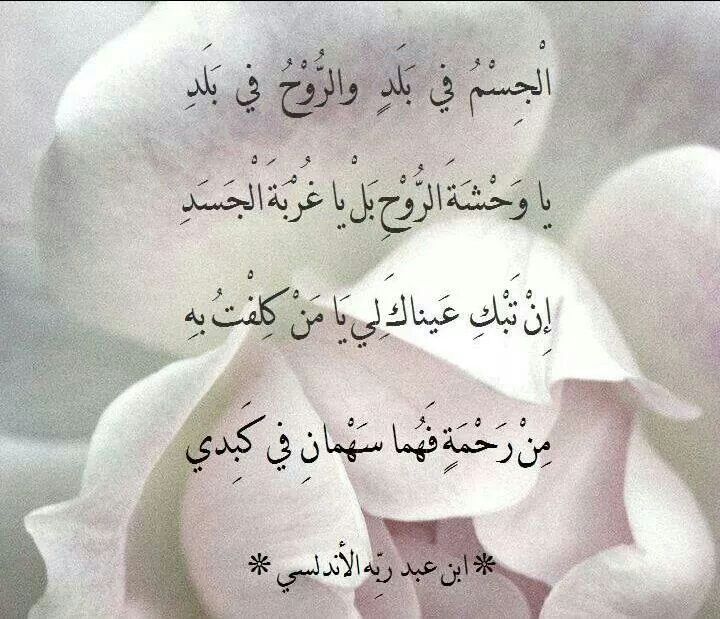 الْجِسْمُ في بَلَدٍ والرُّوْحُ في بَلَدِ
يا وَحْشَةَ الرُّوْحِ بَلْ يا غُرْبَةَ الْجَسَدِ
إِنْ تَبْكِ عَيناكَ لِي يَا مَنْ كِلِفْتُ بِهِ
مِنْ رَحْمَةٍ فَهُما سَهْمانِ فِي كَبِدي
❊ ابن عبد ربّه الأندلسي ❊